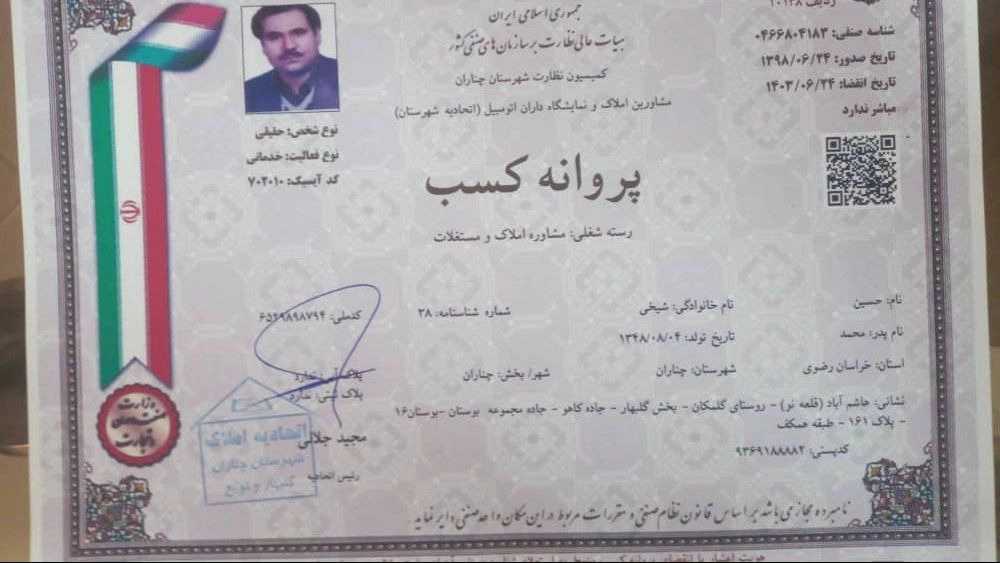 جمهوری اسلامی ایران
هیات عالی نظارت بر سازمان‌های صنفی کشور
کمیسیون نظارت شهرستان چناران
مشاورین املاک و نمایشگاه داران اتومبیل (اتحادیه شهرستان)
ردیف ۲۰۱۲۸
شناسه صنفی: ۰۴۶۶۸۰۴۱۸۳
تاریخ صدور: ۱۳۹۸/۰۶/۲۴
تاریخ انقضاء: ۱۴۰۳/۰۶/۲۴
مباشر ندارد
نوع شخص: حقیقی
نوع فعالیت: خدماتی
کد آیسیک: ۷۰۲۰۱۰
پروانه کسب
رسته شغلی: مشاوره املاک و مستغلات
نام: حسین نام خانوادگی: شیخی شماره شناسنامه: ۲۸ کدملی: ۶۵۲۹۸۹۸۷۹۴
نام پدر: محمد تاریخ تولد: ۱۳۴۸/۰۸/۰۴
استان: خراسان رضوی شهرستان: چناران شهر/ بخش: چناران پلاک آبی: ندارد
پلاک ثبتی: ندارد
نشانی: هاشم آباد (قلعه نو) - روستای گلمکان - بخش گلبهار - جاده کاهو - جاده مجموعه بوستان -بوستان۱۶
- پلاک ۱۶۱ - طبقه همکف
کدپستی: ۹۳۶۹۱۸۸۸۸۲
مجید جلالی
رئیس اتحادیه
اتحادیه املاک
شهرستان چناران
وزارت
صنعت معدن
و تجارت
نامبرده مجاز می باشد بر اساس قانون نظام صنفی و مقررات مربوط در این مکان واحد صنفی دایر نماید.